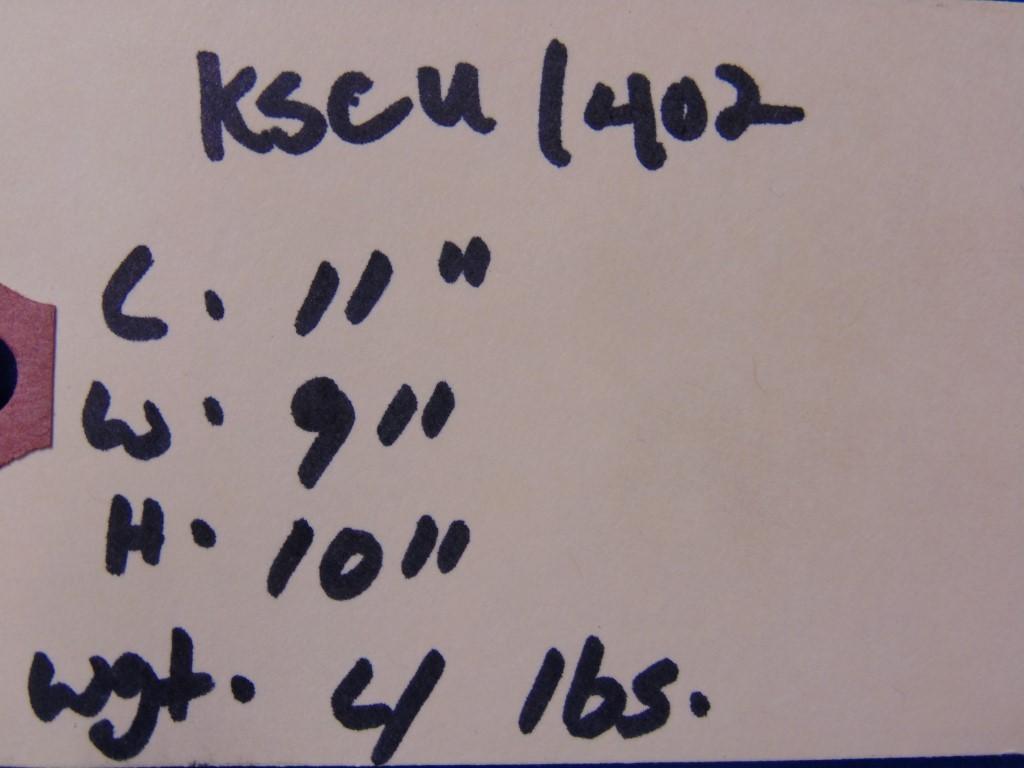 KSCU 1402
L. 11"
W. 9"
H. 10"
wgt. 4 lbs.